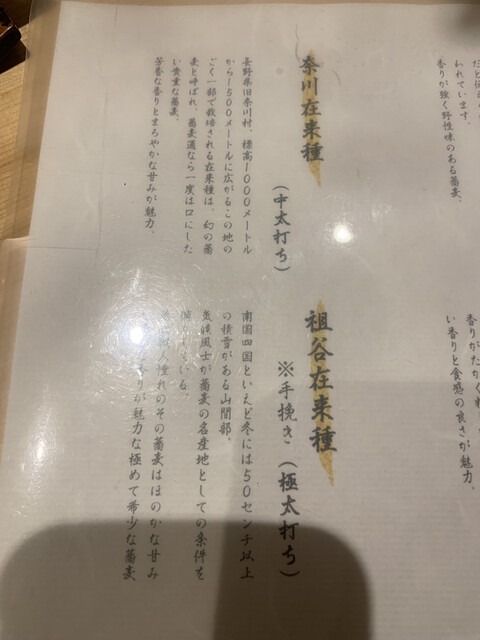 われています。
香りが強く野性味のある蕎麦。
奈川在来種
（中太打ち）
長野県旧奈川村、標高1000メートル
から1500メートルに広がるこの地の
ごく一部で栽培される在来種は、幻の蕎
麦と呼ばれ、蕎麦通なら一度は口にした
い貴重な蕎麦。
芳香な香りとまろやかな甘みが魅力。
い香りと食感の良さが魅力。
祖谷在来種
※手挽き（極太打ち）
南国四国といえど冬には50センチ以上
の積雪がある山間部。
気候風土が蕎麦の名産地としての条件を
満たしている。
人憧れのその蕎麦はほのかな甘み
香りが魅力な極めて希少な蕎麦。